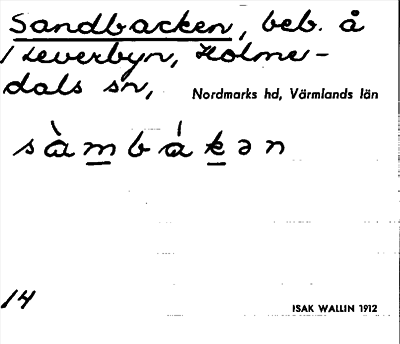 Sandbacken, beb. å
/ Leverbyn, Holme-
dals sn,
Nordmarks hd, Värmlands län
sàmbákən
14
ISAK WALLIN 1912